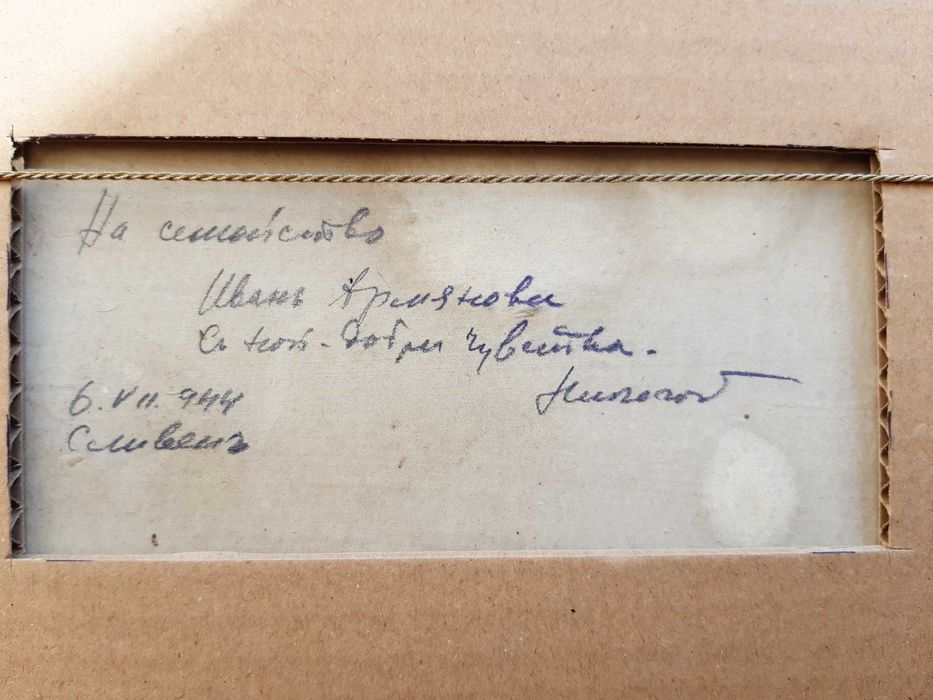 На семейство
Иванъ Армянови
Съ най-добри чувства.
6. VII. 944
Сливенъ